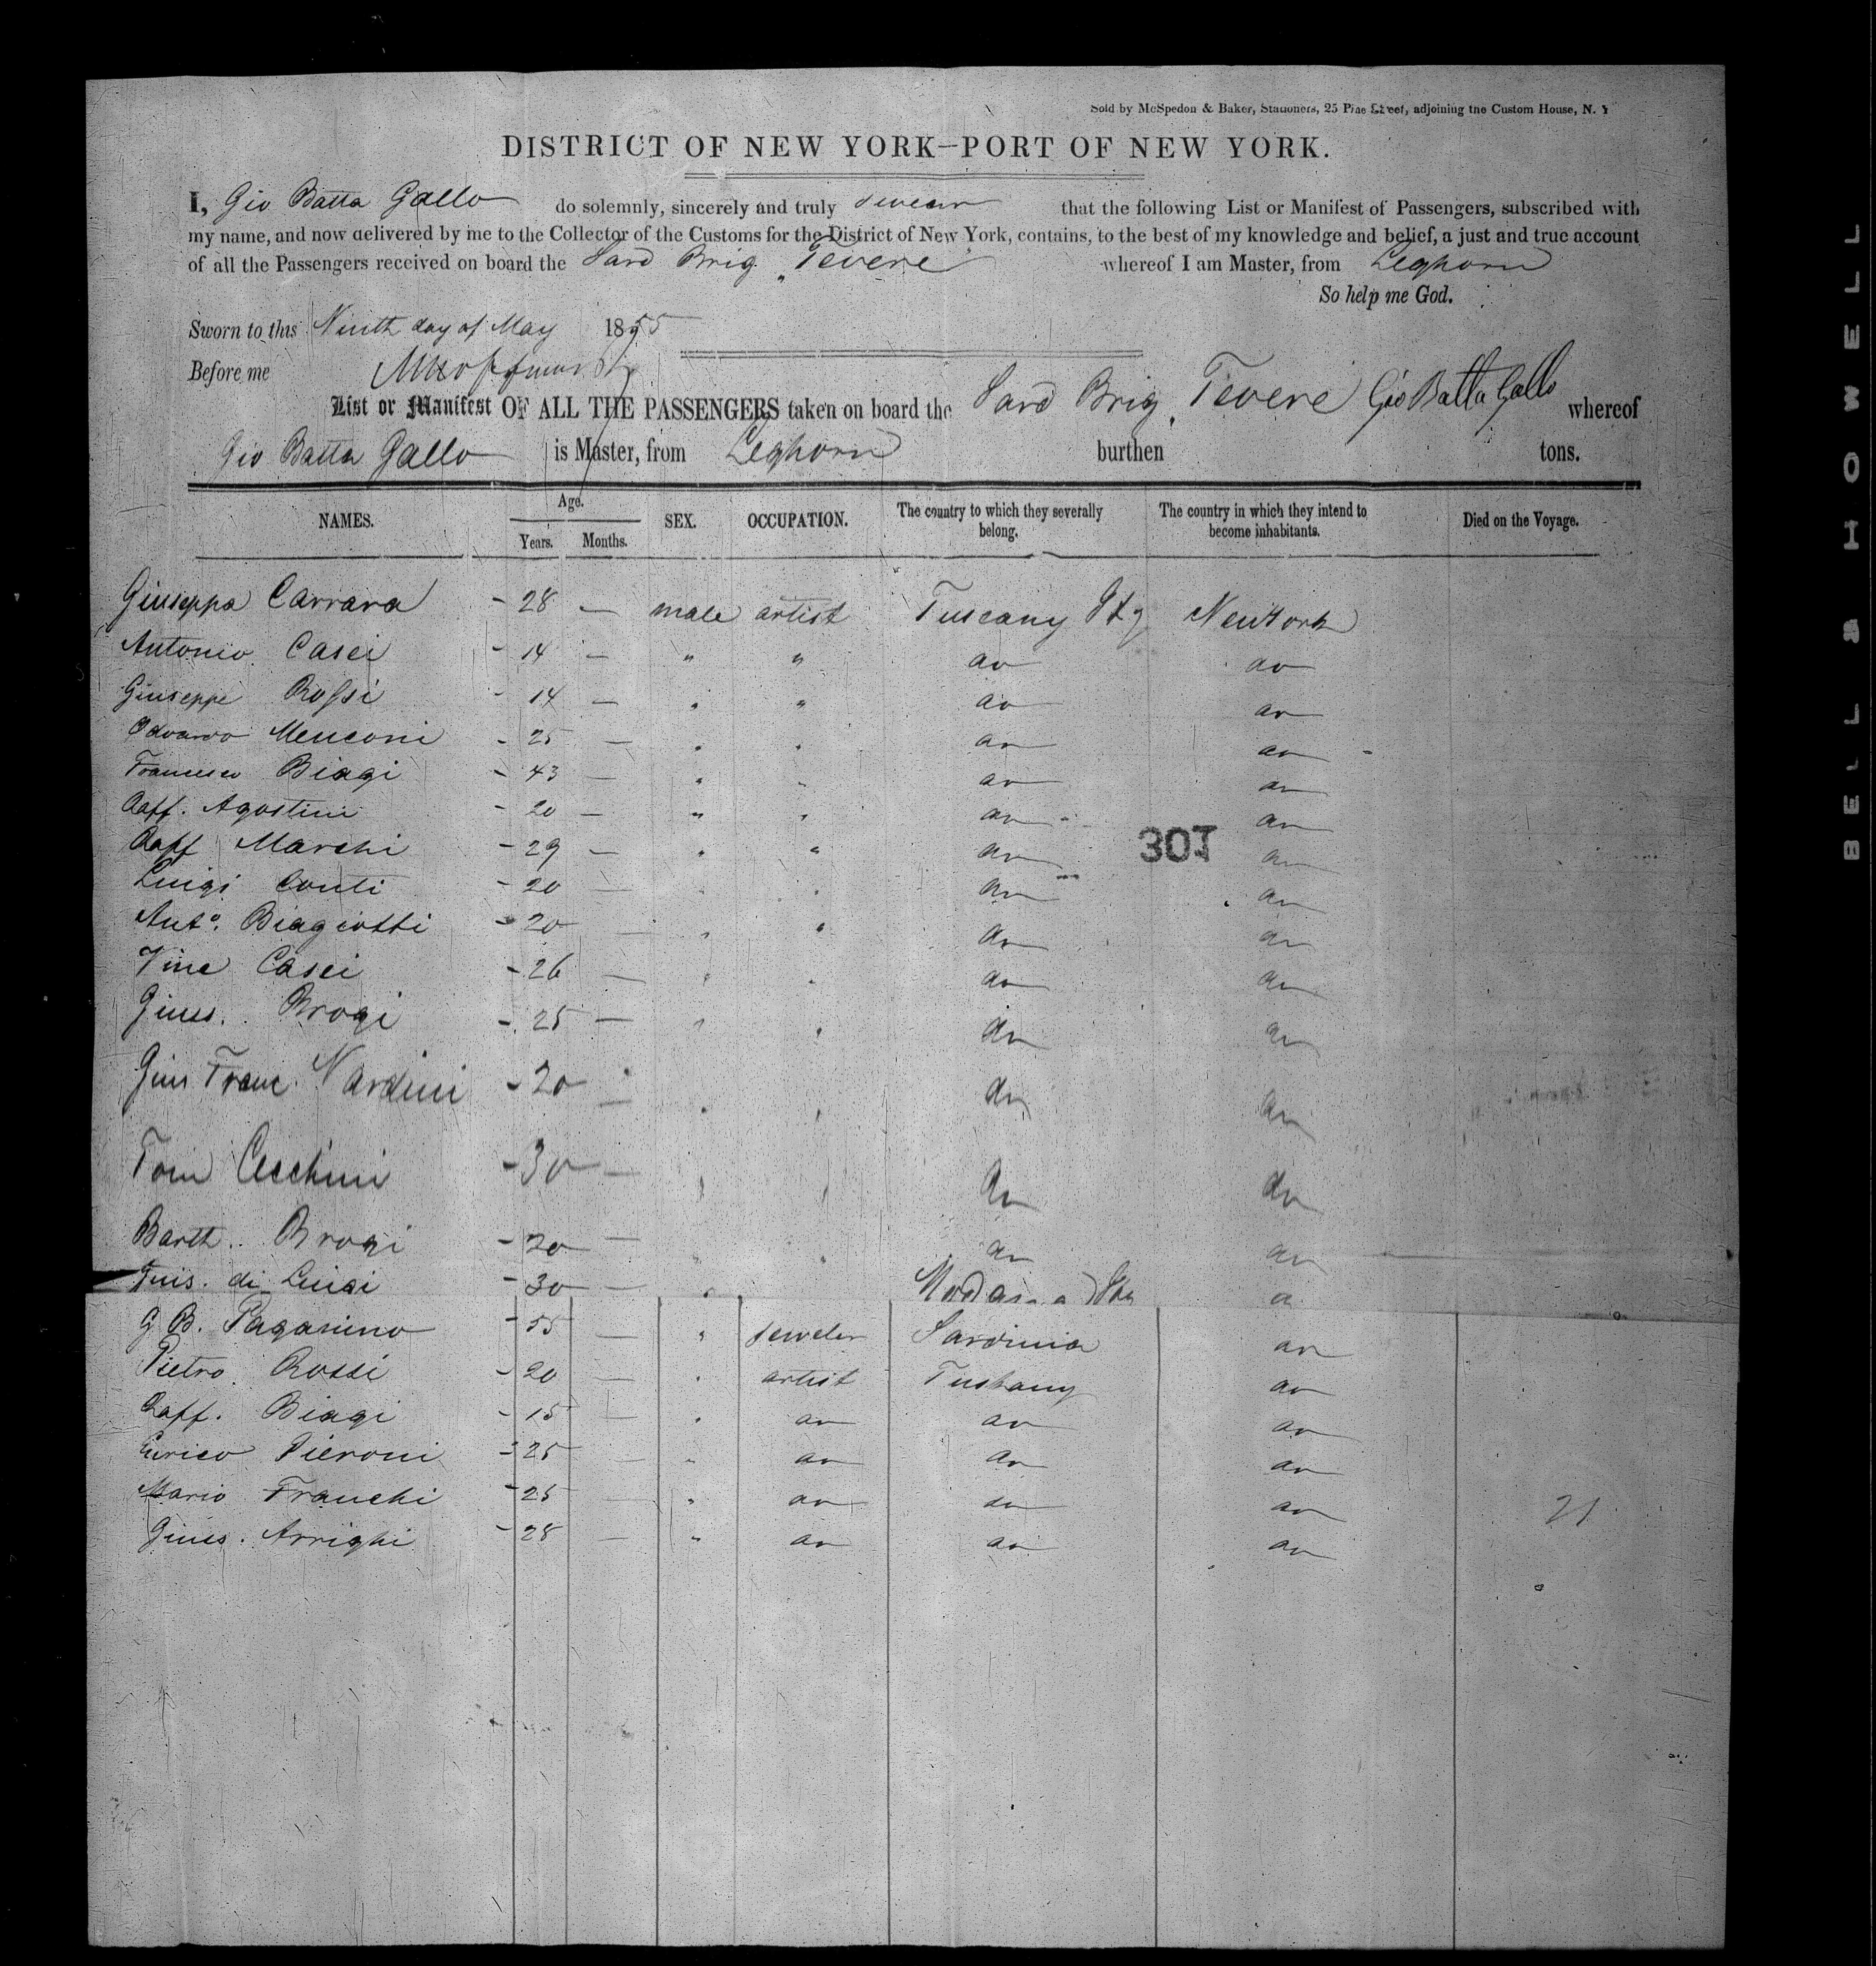 Sold by McSpedon & Baker, Stationers, 25 Pine Street, adjoining the Custom House, N. Y
DISTRICT OF NEW YORK—PORT OF NEW YORK.
I, Gio Batta Gallo do solemnly, sincerely and truly swear that the following List or Manifest of Passengers, subscribed with
my name, and now delivered by me to the Collector of the Customs for the District of New York, contains, to the best of my knowledge and belief, a just and true account
of all the Passengers received on board the Sard Brig "Tevere whereof I am Master, from Leghorn
So help me God.
Sworn to this Ninth day of May 1855
Before me
List or Manifest OF ALL THE PASSENGERS taken on board the Sard Brig "Tevere Gio Batta Gallo whereof
Gio Batta Gallo is Master, from Leghorn burthen tons.
NAMES. Age. Years. Months. SEX. OCCUPATION. The country to which they severally belong. The country in which they intend to become inhabitants. Died on the Voyage.
Giuseppa Carrara - 28 — male artist Tuscany Ity New York
Antonio Casci - 14 — " " do do
Giuseppe Rossi - 14 — " " do do
Odoardo Menconi - 25 — " " do do
Francesco Biagi - 43 — " " do do
Raff. Agostini - 20 — " " do do
Raff Marchi - 29 — " " do do
301
Luigi Conti - 20 — " " do do
Anto. Biagiotti - 20 — " " do do
Vinc Casci - 26 — " " do do
Gius. Brogi - 25 — " " do do
Gius Franc. Nardini - 20 — " " do do
Tom Cecchini - 30 — " " do do
Barth. Brogi - 20 — " " do do
di Luigi - 30 — " do
G B. Paganino - 55 — " jeweler Sardinia do
Pietro Rossi - 20 — " artist Tuskany do
Raff. Biagi - 15 — " do do do
Enrico Pieroni - 25 — " do do do
Mario Franchi - 25 — " do do do
21
Gius. Arrighi - 28 — " do do do
BELL & HOWELL